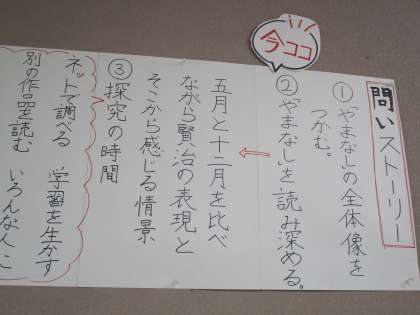 今ココ
問いストーリー
①「やまなし」の全体像を
つかむ。
②「やまなし」を読み深める。
五月と十二月を比べ
ながら賢治の表現と
そこから感じる情景
③探究の時間
ネットで調べる 学習を生かす
別の作品を読む いろんな人に